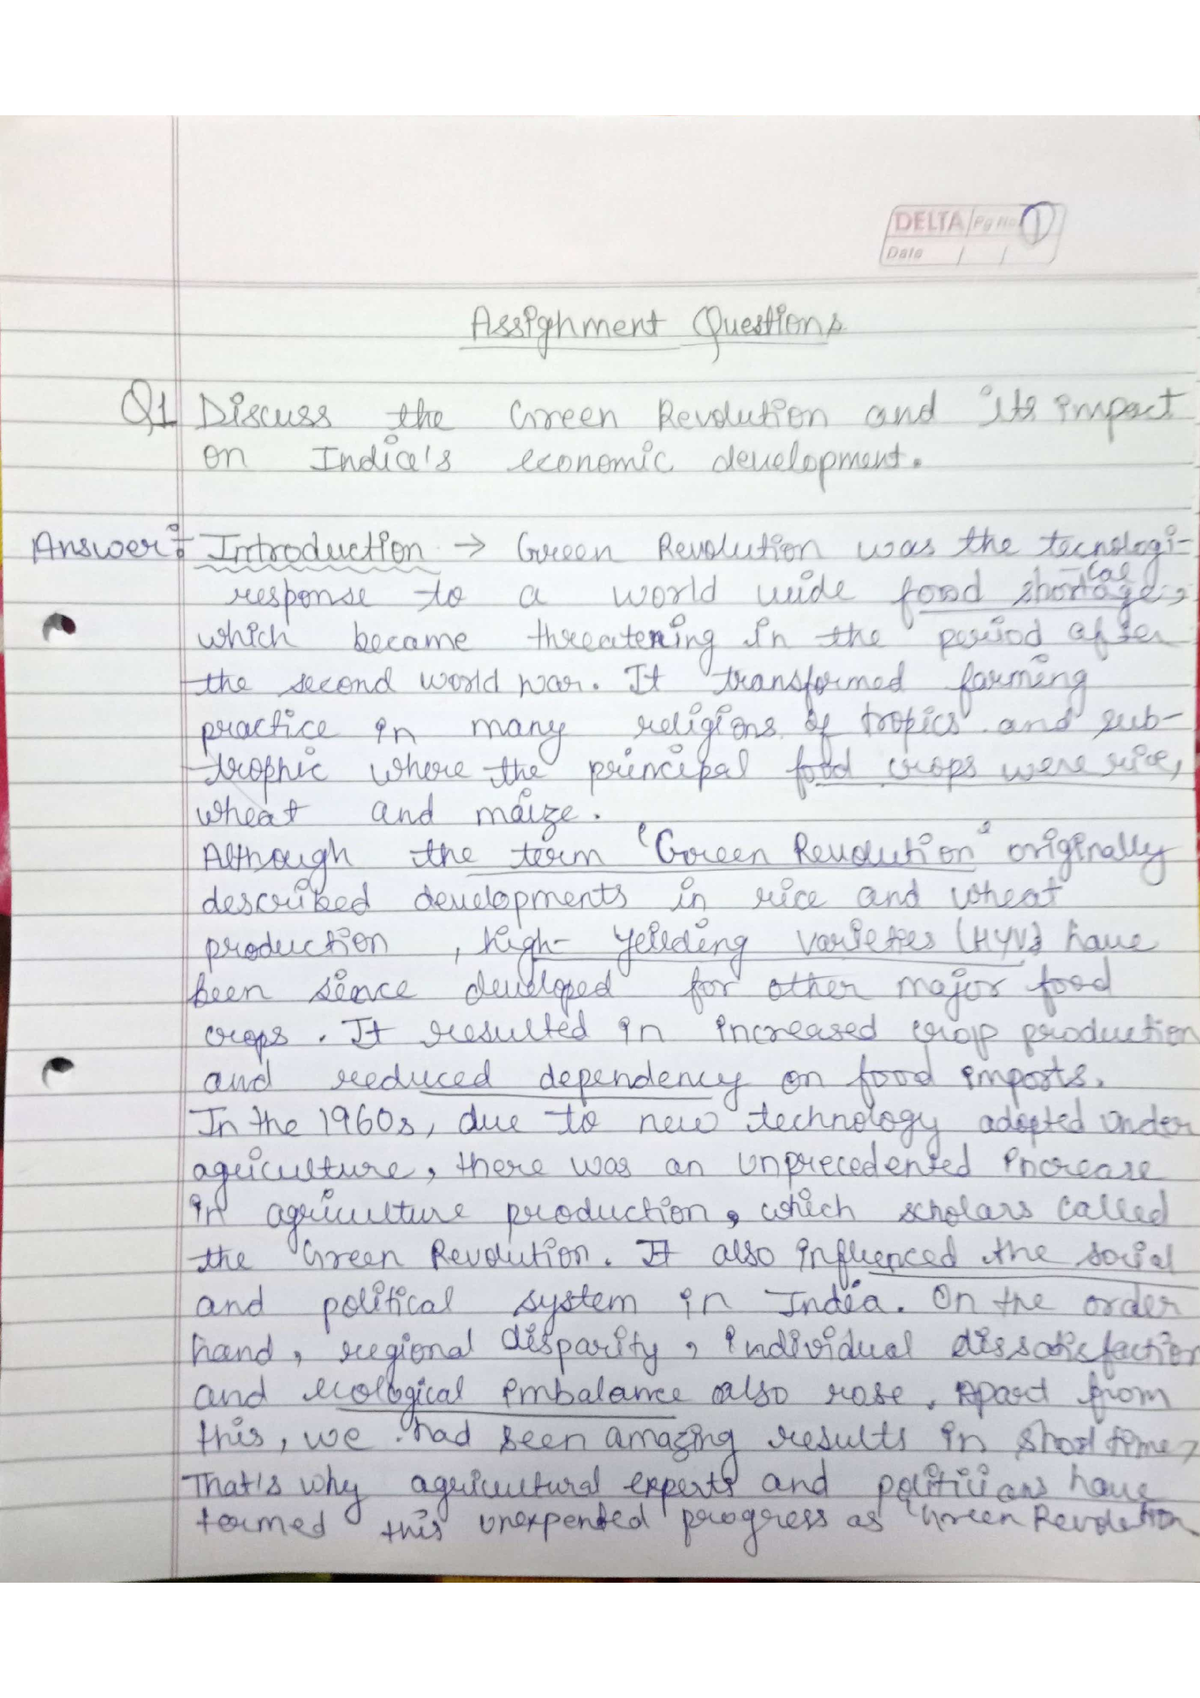 DELTA Pg No. 1
Date / /
Assighment Questions
Q1 Discuss the Green Revolution and its impact
on India's economic development.
Answer: Introduction → Green Revolution was the tecnologi-
cal
response to a world wide food shortage,
which became threatening in the period after
the second world war. It transformed farming
practice in many religions of tropics and sub-
trophic where the principal food crops were rice,
wheat and maize.
Although the term 'Green Revolution' originally
described developments in rice and wheat
production, high- yeilding varieties (HYV) have
been since developed for other major food
crops. It resulted in increased crop production
and reduced dependency on food imports.
In the 1960s, due to new technology adopted under
agriculture, there was an unprecedented increase
in agriculture production, which scholars called
the Green Revolution. It also influenced the social
and political system in India. On the order
hand, regional disparity, individual dissatisfaction
and ecological imbalance also rose. Apart from
this, we had seen amazing results in short time,
That's why agricultural experts and politicians have
termed this unexpented progress as 'Green Revolution